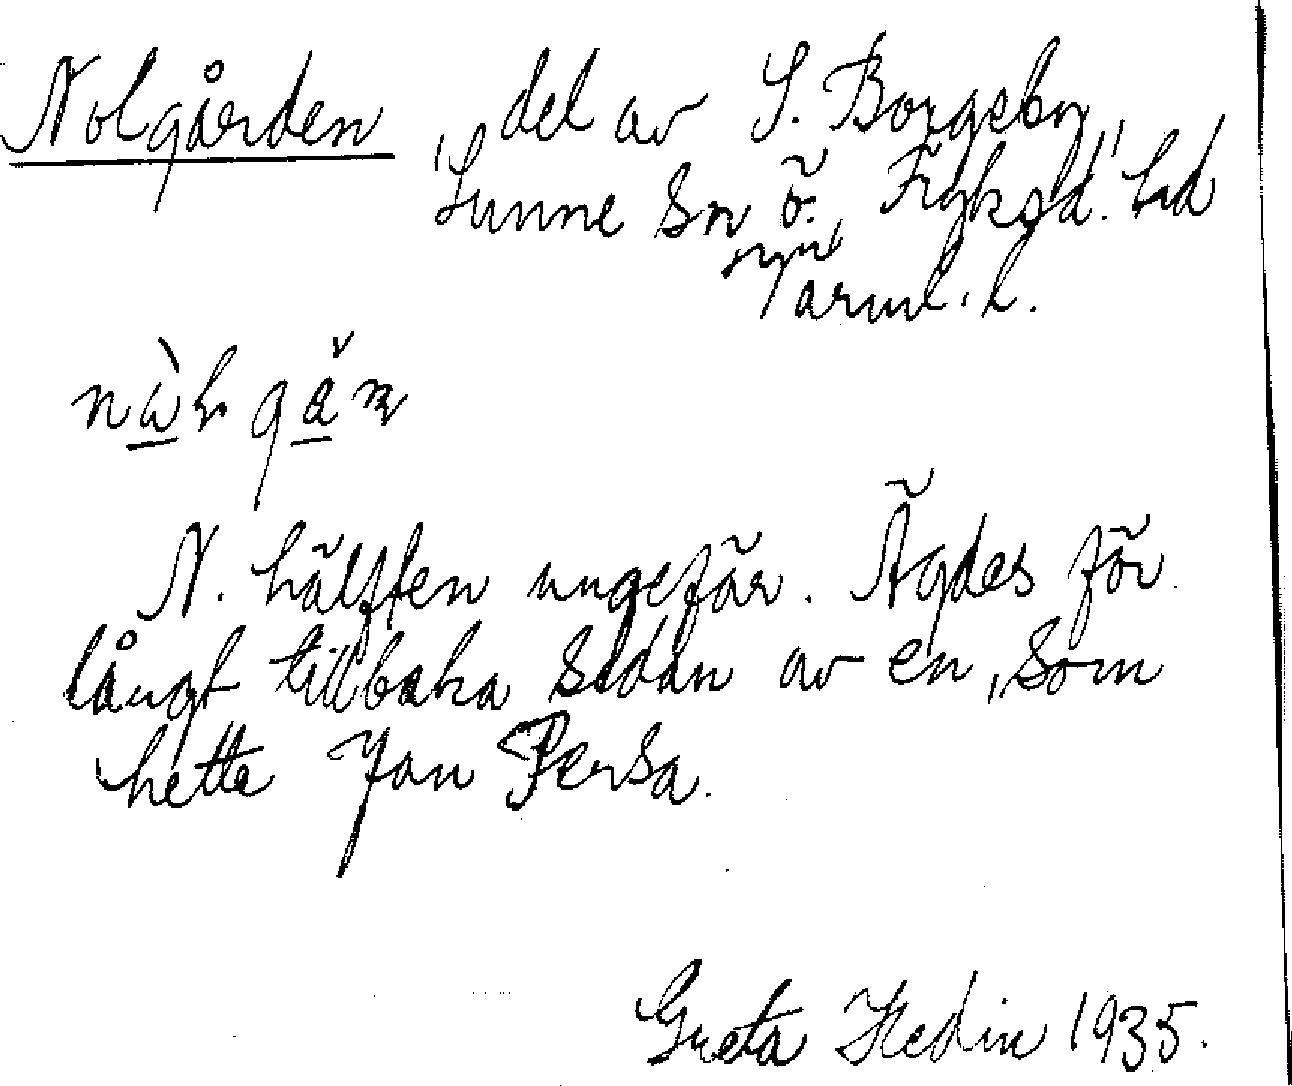 Nolgården del av S. Borgeby,
Sunne sn Ö. Fryksd. hd
Värml. l.
N. hälften ungefär. Ägdes för
långt tillbaka sedan av en, som
hette Jan Persa.
Greta Hedin 1935.